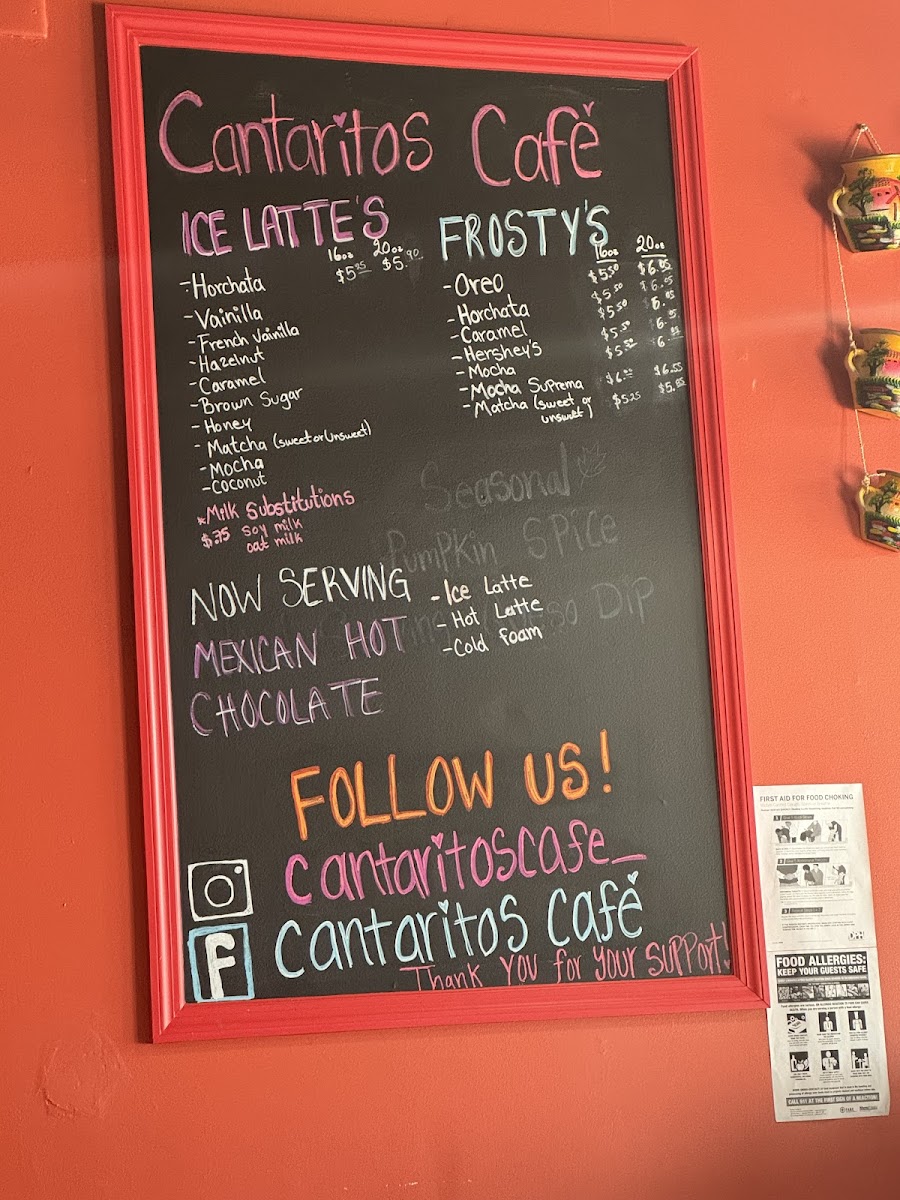 Cantaritos Café
ICE LATTE'S
16oz 20oz
$5.25 $5.90
-Horchata
-Vainilla
-French Vainilla
-Hazelnut
-Caramel
-Brown Sugar
-Honey
-Matcha (sweet or Unsweet)
-Mocha
-Coconut
*Milk Substitutions
$.75 Soy milk
oat milk
FROSTY'S
16oz 20oz
-Oreo $5.50
-Horchata $5.50
-Caramel $5.50
-Hershey's $5.50
-Mocha $5.50
-Mocha Suprema $6.55
-Matcha (sweet or $5.25
unsweet)
Seasonal
Pumpkin Spice
Dip
NOW SERVING
MEXICAN HOT
CHOCOLATE
-Ice Latte
-Hot Latte
-Cold foam
FOLLOW US!
cantaritoscafe_
F
Cantaritos Café
Thank you for your support!
FIRST AID FOR FOOD CHOKING
1
2
3
FOOD ALLERGIES:
KEEP YOUR GUESTS SAFE
CALL 911 AT THE FIRST SIGN OF A REACTION!